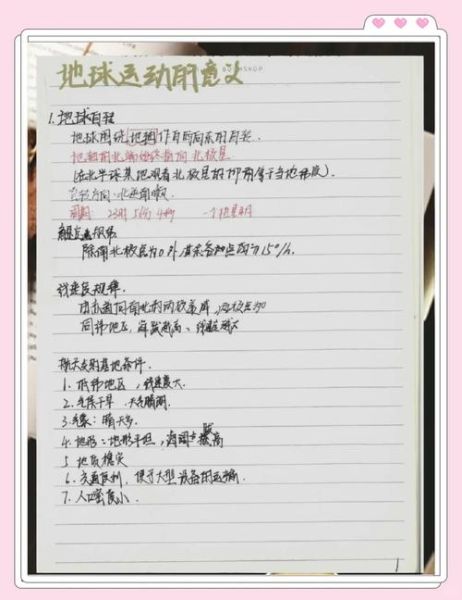 地球运动的意义
1.地球自转
地球围绕地轴作自西向东的自转
地轴的北端始终指向北极星
(在北半球某地观看北极星的仰角等于当地纬度)
自转方向:北逆南顺
周期 23时56分4秒 一个恒星日
角速度规律
除南北极点为0外,其余各地点均为15°/h.
线速度规律.
由赤道向南北的两极递减,两极点为0
同纬地区,海拔越高、线速越大
航天发射基地条件.
1.低纬地区,线速度大.
2.气候干旱 大气晴朗.
3.气象:晴天多.
4.地形:地形平坦,海拔高
5 地质稳定
6.交通便利,便于大型设备的运输.
7.人口密度小.
1